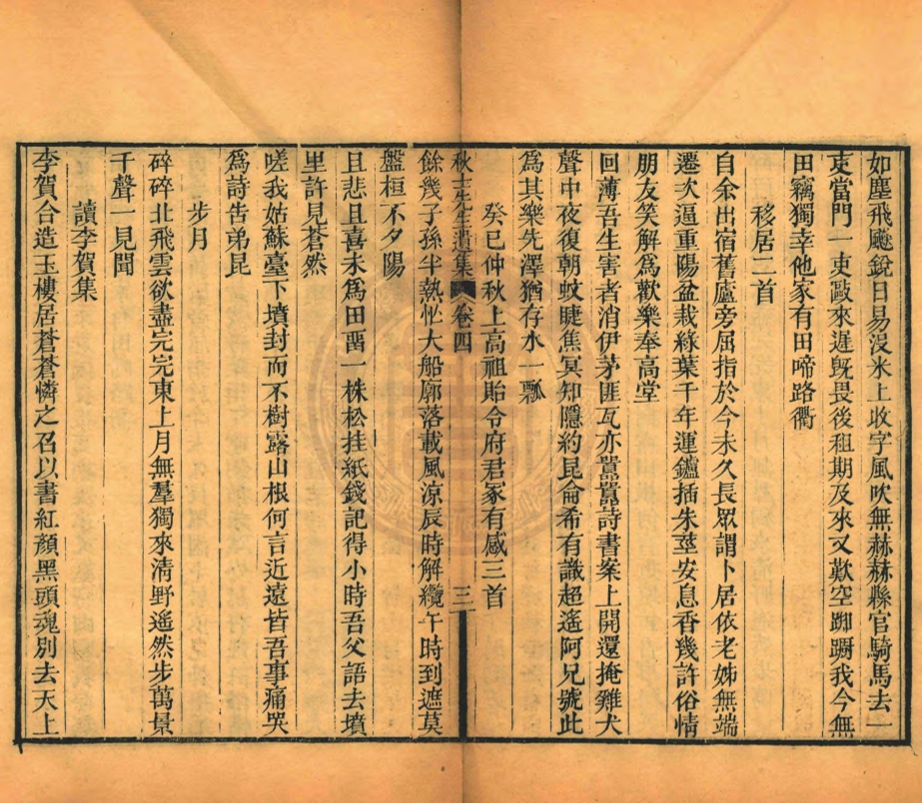 如塵飛颺銳日易沒米上收字風吹無赫赫縣官騎馬去一
吏當門一吏敺來遲旣畏後租期及來又歎空踟躕我今無
田竊獨幸他家有田啼路衢
移居二首
自余出宿舊廬旁屈指於今未久長眾謂卜居依老姊無端
遷次逼重陽盆栽綠葉千年運鑪插朱莖安息香幾許俗情
朋友笑解爲歡樂奉高堂
回薄吾生害者消伊茅匪瓦亦囂囂詩書案上開還掩雞犬
聲中夜復朝蚊睫焦冥知隱約昆侖希有識超遙阿兄號此
爲其樂先澤猶存水一瓢
癸巳仲秋上高祖貽令府君冢有感三首
秋士先生遺集 卷四 三
餘幾子孫半熱忙大船廓落載風涼辰時解纜午時到遮莫
盤桓不夕陽
且悲且喜未爲田畱一株松挂紙錢記得小時吾父語去墳
里許見蒼然
嗟我姑蘇臺下墳封而不樹露山根何言近遠皆吾事痛哭
爲詩告弟昆
步月
碎碎北飛雲欲盡完完東上月無羣獨來清野遙然步萬景
千聲一見聞
讀李賀集
李賀合造玉樓居蒼蒼憐之召以書紅顏黑頭魂別去天上